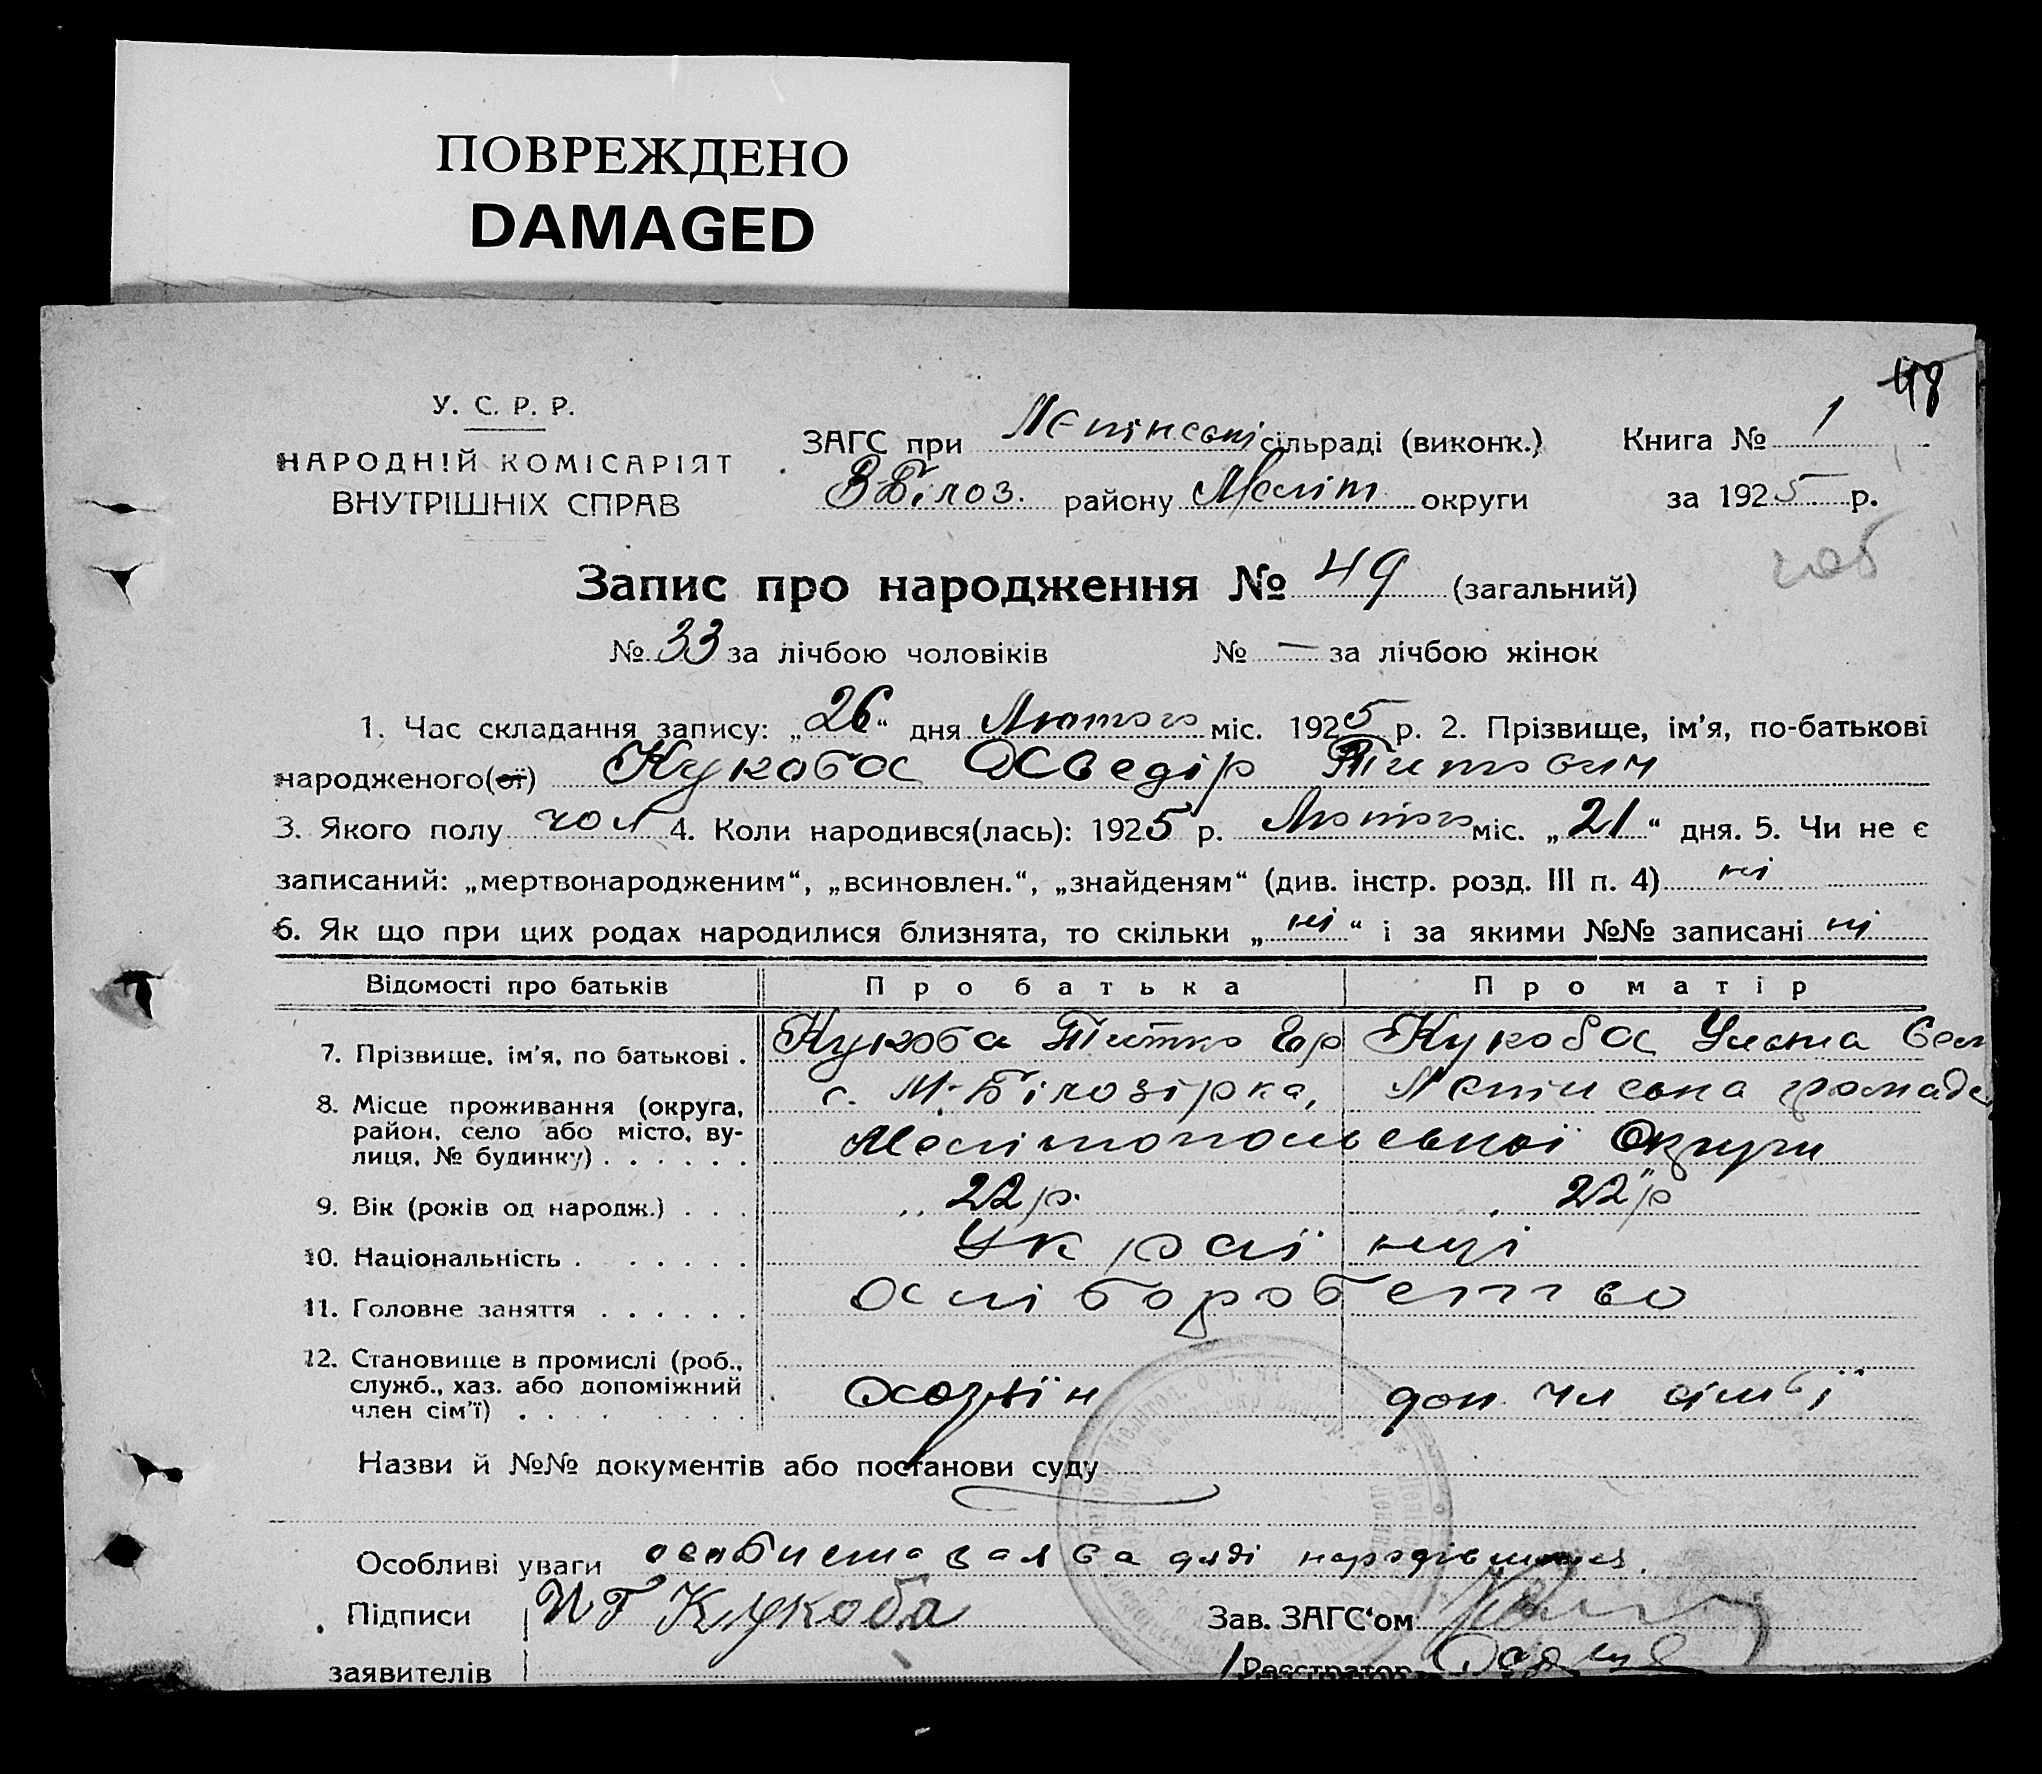 ПОВРЕЖДЕНО
DAMAGED
48
У. С. Р. Р.
НАРОДНІЙ КОМІСАРІЯТ
ВНУТРІШНІХ СПРАВ
ЗАГС при сільраді (виконк.) Книга № 1
В-Білоз. району Меліт. округи за 1925 р.
Запис про народження № 49 (загальний)
№ 33 за лічбою чоловіків № — за лічбою жінок
1. Час складання запису: „26“ дня Лютого міс. 1925 р. 2. Прізвище, ім'я, по-батькові
народженого(ої) Кукоба Титович
3. Якого полу чол 4. Коли народився(лась): 1925 р. Лютого міс. „21“ дня. 5. Чи не є
записаний: „мертвонародженим“, „всиновлен.“, „знайденям“ (див. інстр. розд. III п. 4) ні
6. Як що при цих родах народилися близнята, то скільки „ні“ і за якими №№ записані ні
Відомості про батьків Про батька Про матір
7. Прізвище, ім'я, по батькові . Кукоба Титко Кукоба Уляна
8. Місце проживання (округа, район, село або місто, вулиця, № будинку) . . . . . . с. М-Білозірка, громада
Мелітопольської Округи
9. Вік (років од народж.) . . . 22 р. 22 р
10. Національність . . . . . . Украї нці
11. Головне заняття . . . . . . хліборобство
12. Становище в промислі (роб., служб., хаз. або допоміжний член сім'ї) . . хозяїн доп. чл сім'ї
Назви й №№ документів або постанови суду
Особливі уваги особиста заява
Підписи Кукоба Зав. ЗАГС'ом
заявителів Реєстратор